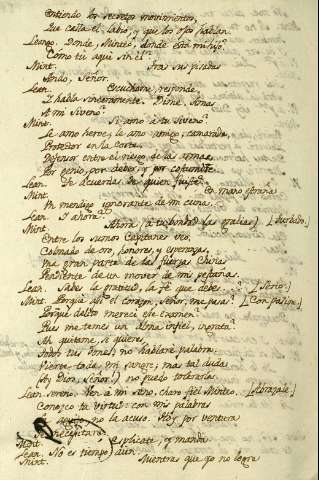 Entiendo los secretos movimientos,
Que calla el labio, y que los ojos hablan.
Leango. Donde, Minteo, donde está mi hijo?
Como tu aqui sin él?
Mint. Tras sus pisadas
Ando, Señor.
Lean. Escuchame, responde,
I habla sinceramente. Dime, Amas
A mi Siveno?
Mint. Si amo á tu Siveno?
Le amo heroe, le amo amigo, camarada,
Protector en la Corte,
Defensor entre el riesgo de las armas
Por genio, por deber, y por costumbre.
Lean. Te acuerdas de quien fuiste?
Mint. En mano
Un mendigo ignorante de mi cuna.
Lean. I ahora?
Mint. Ahora (á tu bondad las gracias) [Turbado.]
Entre los sumos Capitanes veo,
Colmado de oro, honores, y esperanzas,
Una gran parte de las fuerzas Chinas
Pendiente de un mover de mis pestañas.
Lean. Sabes la gratitud, la fé que debes...? [Serio.]
Mint. Porqué asi el corazon, Señor, me pasas? [Con pasion.]
Porqué delito merecí este examen?
Pues me temes un alma infiel, ingrata?
Ah quitame, si quieres,
Todos tus dones, no hablaré palabra.
Vierte toda mi sangre; mas tal duda
(Ay Dios, Señor!) no puedo tolerarla.
Lean. Ven á mi seno, charo fiel Minteo. [Abrazale.]
Conozco tu virtud: con mis palabras
no la acuso. Hoy por ventura
necesitará
Mint. Esplicate, y manda
Lean. No es tiempo aun.
Mint. Mientras que yo no logre